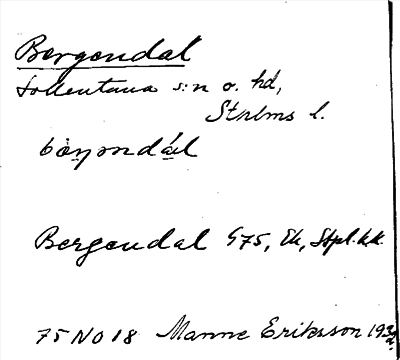 Bergendal
Sollentuna s:n o. hd,
Sthlms l.
Bergendal G75, Ek, Stpl. kk.
75 NO 18 Manne Eriksson 1932